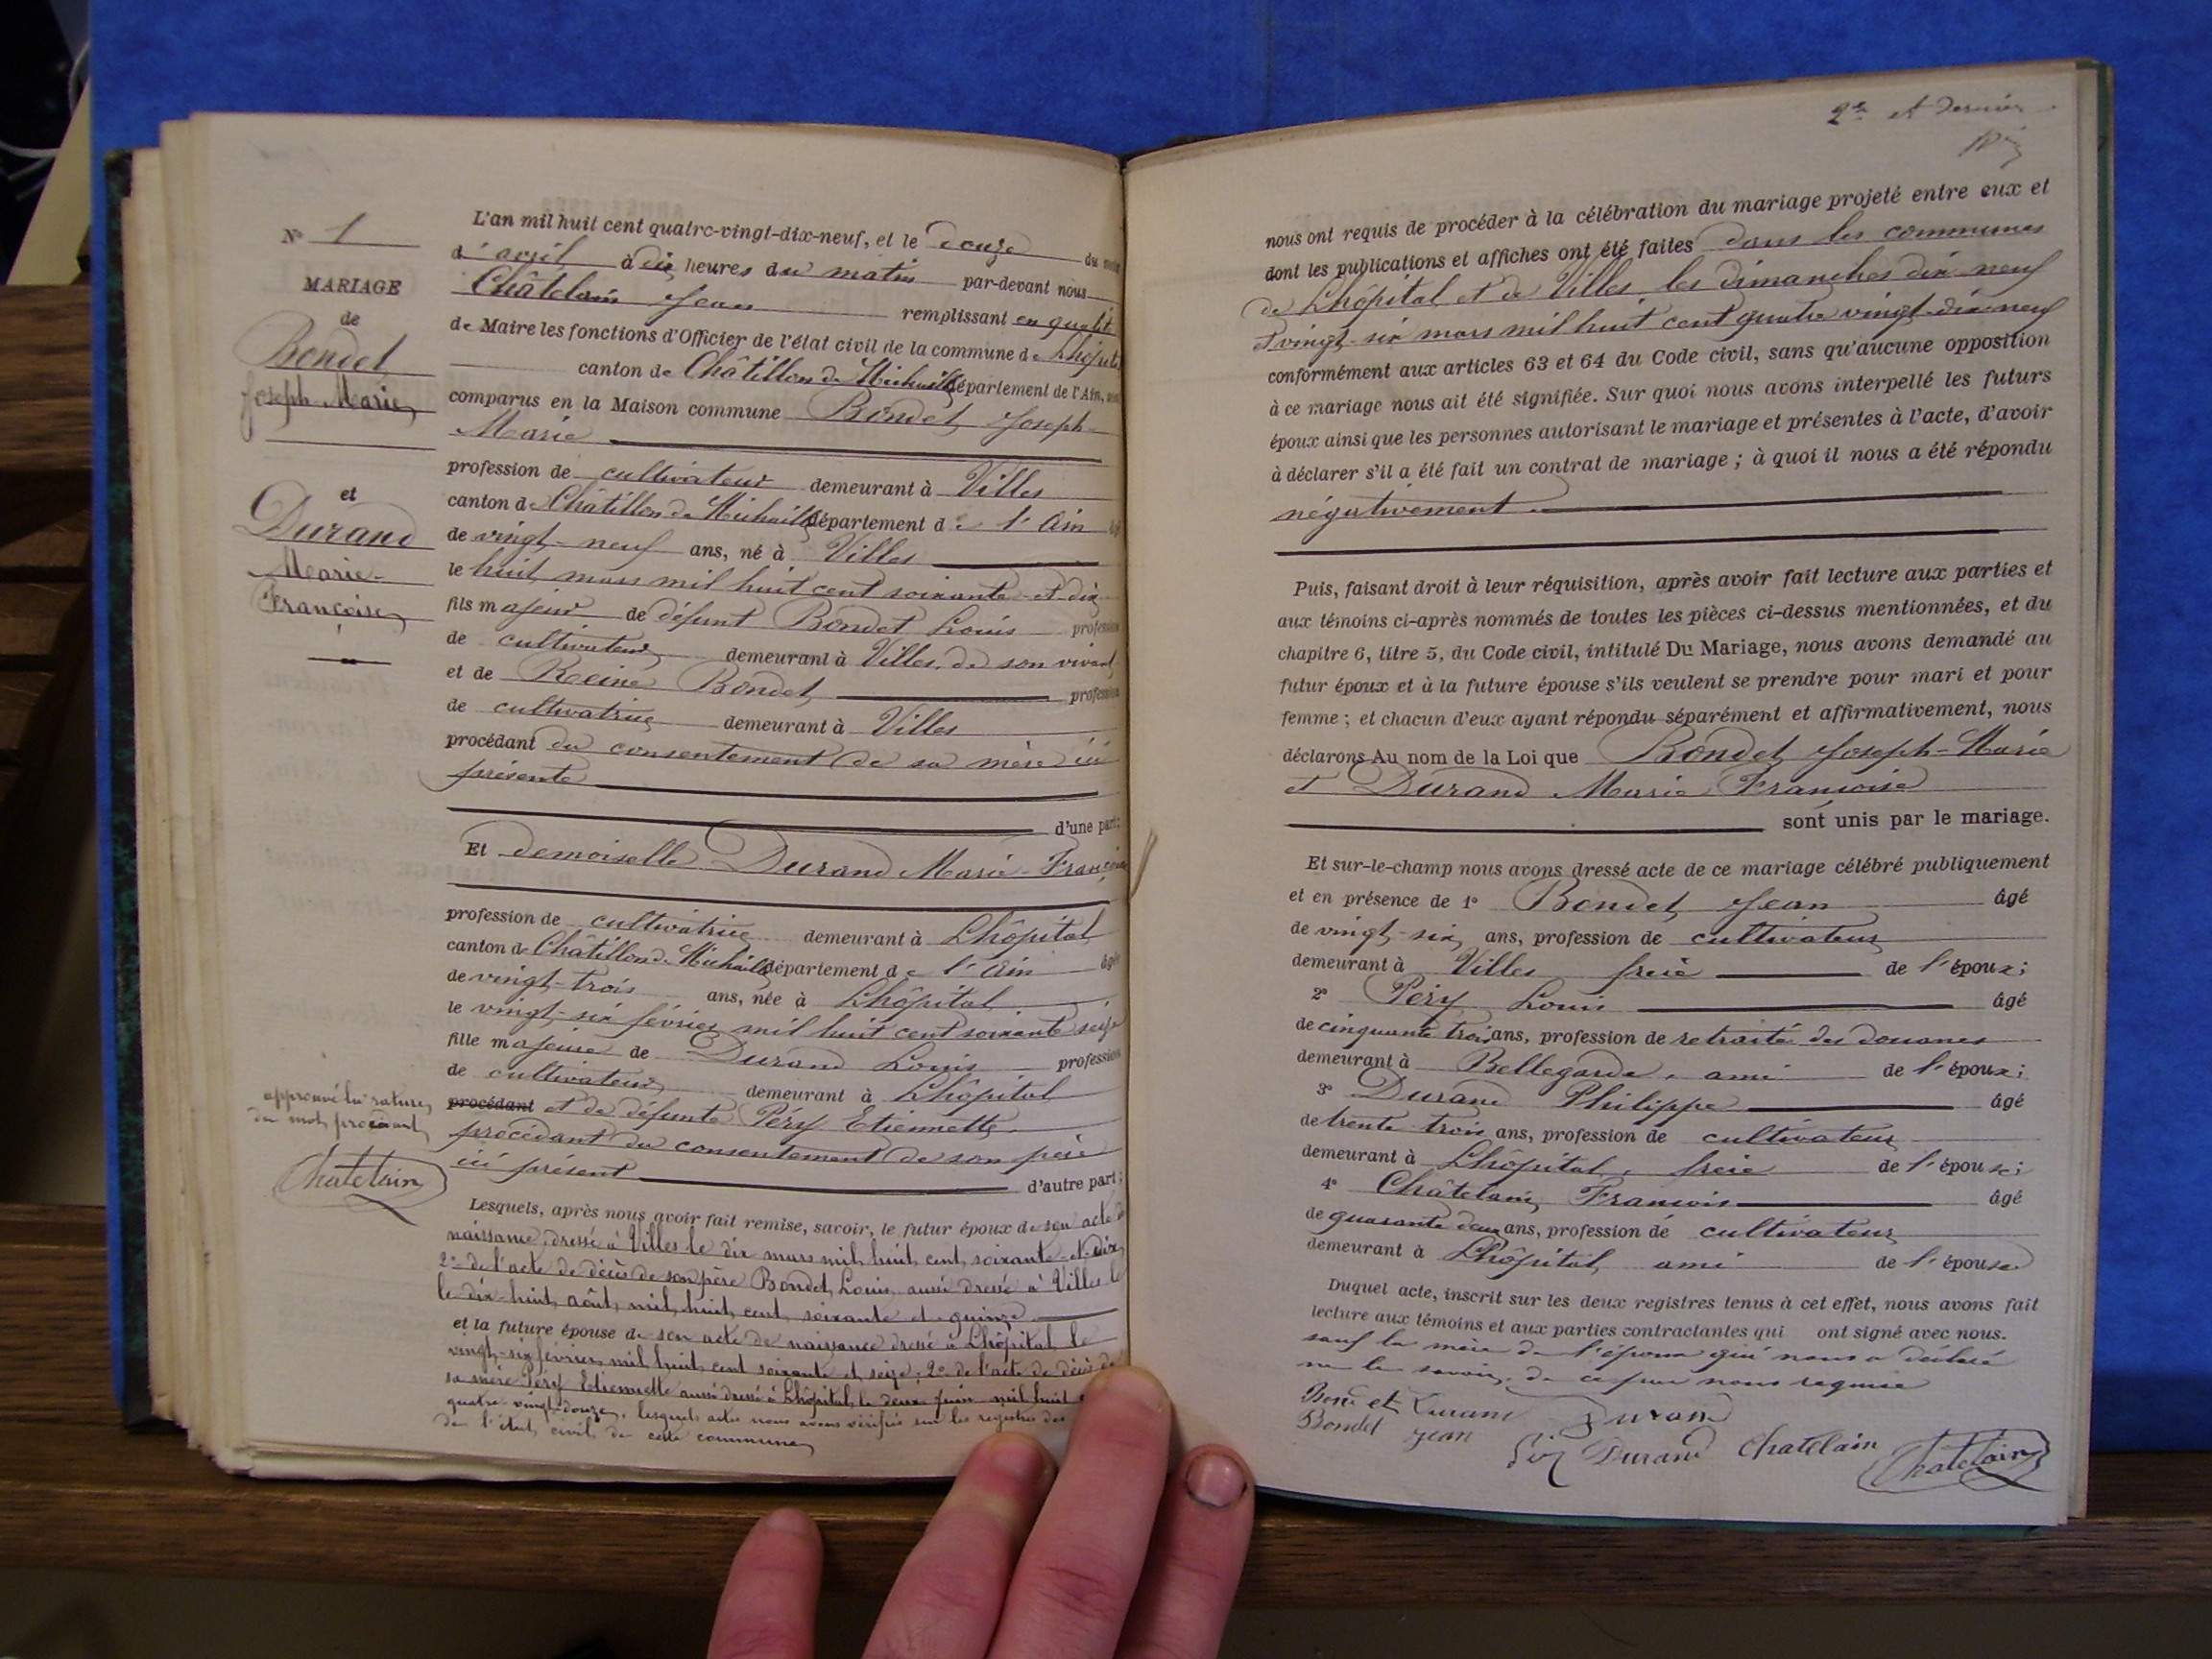 N° 1
MARIAGE
de
Bondet
Joseph-Marie
et
Durand
Marie-
Françoise
approuvé la rature
du mot procédant
Chatelain
L'an mil huit cent quatre-vingt-dix-neuf, et le douze du mois
d'avril à dix heures du matin par-devant nous
Châtelain Jean remplissant en qualité
de Maire les fonctions d'Officier de l'état civil de la commune de Lhôpital
canton de Châtillon de Michaille département de l'Ain, sont
comparus en la Maison commune Bondet Joseph-
Marie
profession de cultivateur demeurant à Villes
canton de Châtillon de Michaille département de l'Ain âgé
de vingt-neuf ans, né à Villes
le huit mars mil huit cent soixante-et-dix
fils majeur de défunt Bondet Louis profession
de cultivateur demeurant à Villes, de son vivant
et de Reine Bondet profession
de cultivatrice demeurant à Villes
procédant du consentement de sa mère ici
présente
d'une part;
Et demoiselle Durand Marie-Françoise
profession de cultivatrice demeurant à Lhôpital
canton de Châtillon de Michaille département de l'Ain âgée
de vingt-trois ans, née à Lhôpital
le vingt-six février mil huit cent soixante seize
fille majeure de Durand Louis profession
de cultivateur demeurant à Lhôpital
procédant et de défunte Péry Etiennette
procédant du consentement de son père
ici présent d'autre part;
Lesquels, après nous avoir fait remise, savoir, le futur époux de son acte de
naissance, dressé à Villes le dix mars mil huit cent soixante-et-dix
2° de l'acte de décès de son père Bondet Louis, aussi dressé à Villes le
le dix-huit août mil huit cent soixante et quinze
et la future épouse de son acte de naissance dressé à Lhôpital le
vingt-six février mil huit cent soixante et seize; 2° de l'acte de décès de
sa mère Péry Etiennette aussi dressé à Lhôpital le deux juin mil huit
quatre-vingt-douze, lesquels actes nous avons vérifiés sur les registres
de l'état civil de cette commune
2e et dernier
nous ont requis de procéder à la célébration du mariage projeté entre eux et
dont les publications et affiches ont été faites dans les communes
de Lhôpital et de Villes les dimanches dix neuf
et vingt-six mars mil huit cent quatre vingt-dix-neuf
conformément aux articles 63 et 64 du Code civil, sans qu'aucune opposition
à ce mariage nous ait été signifiée. Sur quoi nous avons interpellé les futurs
époux ainsi que les personnes autorisant le mariage et présentes à l'acte, d'avoir
à déclarer s'il a été fait un contrat de mariage; à quoi il nous a été répondu
négativement.
Puis, faisant droit à leur réquisition, après avoir fait lecture aux parties et
aux témoins ci-après nommés de toutes les pièces ci-dessus mentionnées, et du
chapitre 6, titre 5, du Code civil, intitulé Du Mariage, nous avons demandé au
futur époux et à la future épouse s'ils veulent se prendre pour mari et pour
femme; et chacun d'eux ayant répondu séparément et affirmativement, nous
déclarons Au nom de la Loi que Bondet Joseph-Marie
et Durand Marie Françoise
sont unis par le mariage.
Et sur-le-champ nous avons dressé acte de ce mariage célébré publiquement
et en présence de 1° Bondet Jean âgé
de vingt-six ans, profession de cultivateur
demeurant à Villes frère de l'époux;
2° Péry Louis âgé
de cinquante trois ans, profession de retraité des douanes
demeurant à Bellegarde, ami de l'époux;
3° Durand Philippe âgé
de trente trois ans, profession de cultivateur
demeurant à Lhôpital, frère de l'épouse;
4° Châtelain François âgé
de quarante deux ans, profession de cultivateur
demeurant à Lhôpital ami de l'épouse
Duquel acte, inscrit sur les deux registres tenus à cet effet, nous avons fait
lecture aux témoins et aux parties contractantes qui ont signé avec nous.
sauf la mère de l'époux qui nous a déclaré
ne le savoir, de ce par nous requise
Bondet Durand Durand
Bondet Jean
Durand Chatelain Chatelain